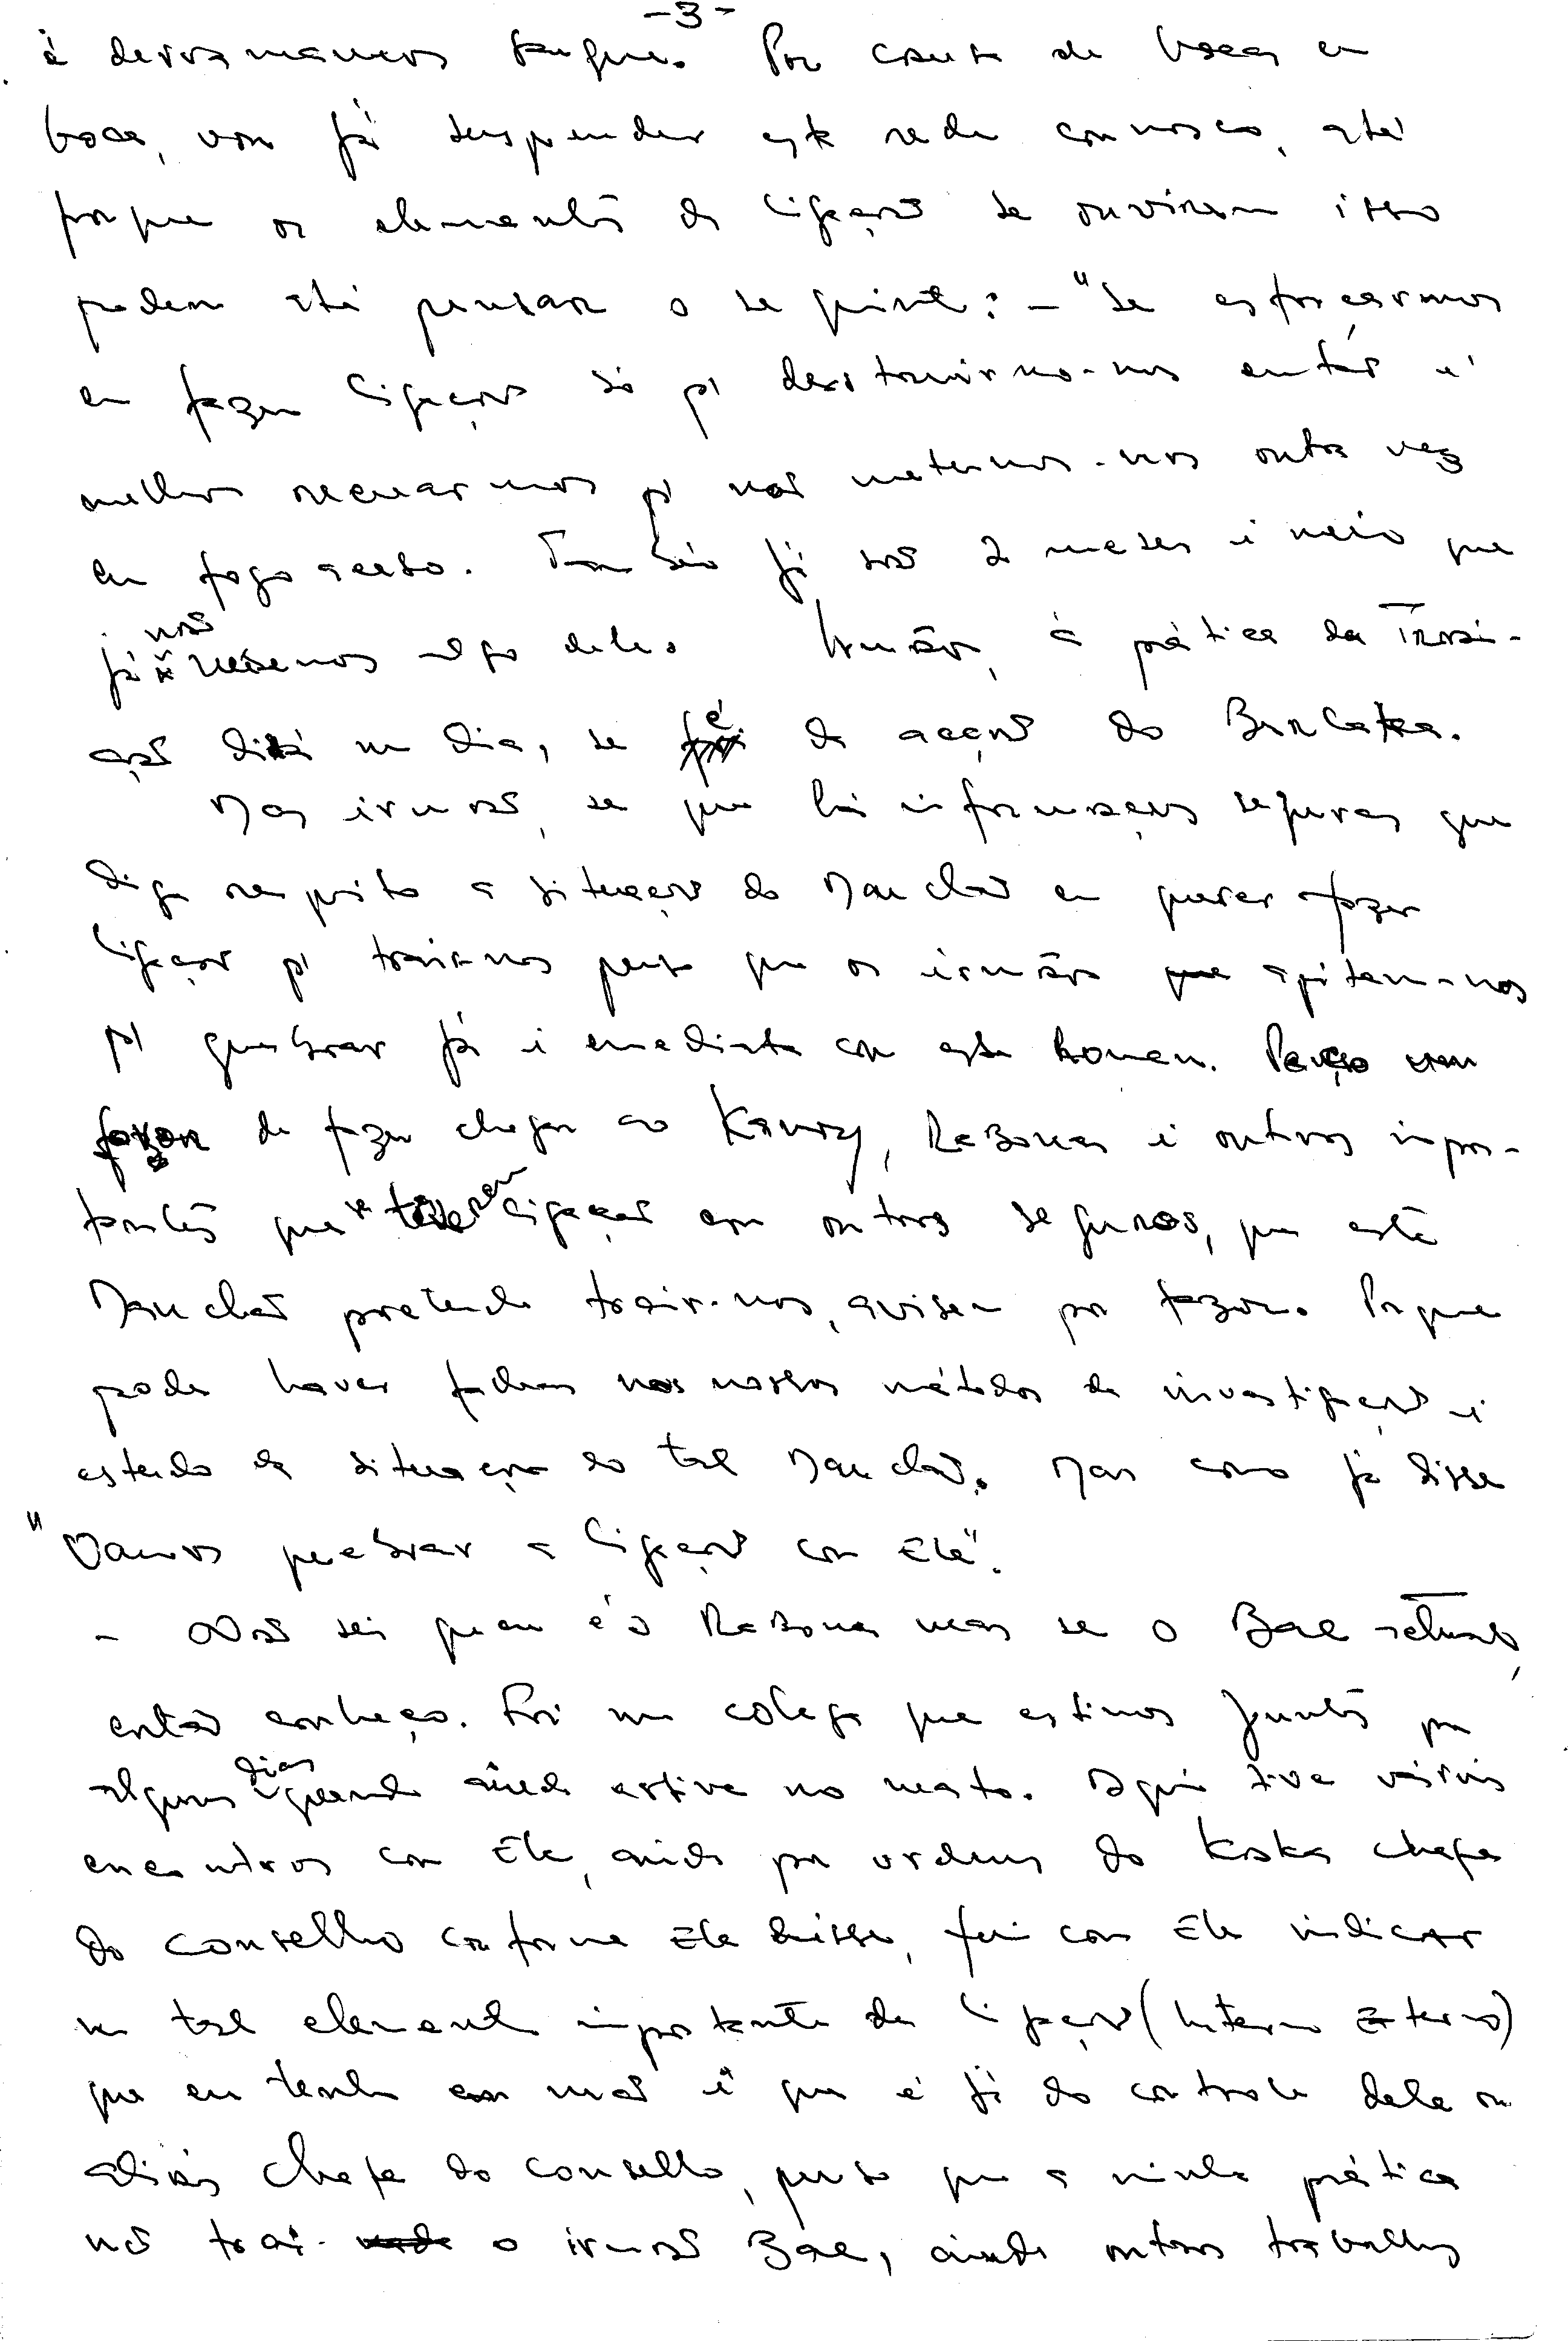 -3-
é derramamos sangue. Por causa de boca em
boca, vou já suspender esta rede connosco, até
porque os elementos de ligação se ouviram isso
podem até pensar o seguinte: - "Se esforçarmos
em fazer ligação só p/ destruirmo-nos então é
melhor recuarmos p/ não metermos-nos outra vez
em fogo aceso. Também já são 2 meses i meio que
já não recebemos algo dele. Irmãos, a prática da Trai-
ção dirá um dia, se é da acção do Banlatka.
Mas irmão, se que há informações seguras que
diga respeito a situação do Manchas em querer fazer
ligação p/ trair-nos penso que os irmãos agitem-nos
p/ quebrar já i imediata com este homem. Peço um
favor de fazer chegar ao Kanoy, Razonas i outros impor-
tantes que se tiverem ligação com outros seguros, que este
Manchas pretende trair-nos, avisem por favor. Porque
pode haver falhas nos nossos métodos de investigação i
estudo da situação do tal Manchas. Mas como já disse
"Vamos quebrar a ligação com Ele".
- Não sei quem é o Razonas mas se o Bael
então conheço. Foi um colega que estivemos juntos por
alguns dias quando ainda estive no mato. Aqui tive vários
encontros com Ele, ainda por ordens do Koka chefe
do conselho conforme Ele disse, fui com Ele indicar
um tal elemento importante de ligação (Interno Externo)
que eu tenho em mãos i que é já do controle dele ou
aliás chefe do conselho, penso que a minha prática
não trai o irmão Bael, ainda outros trabalhos